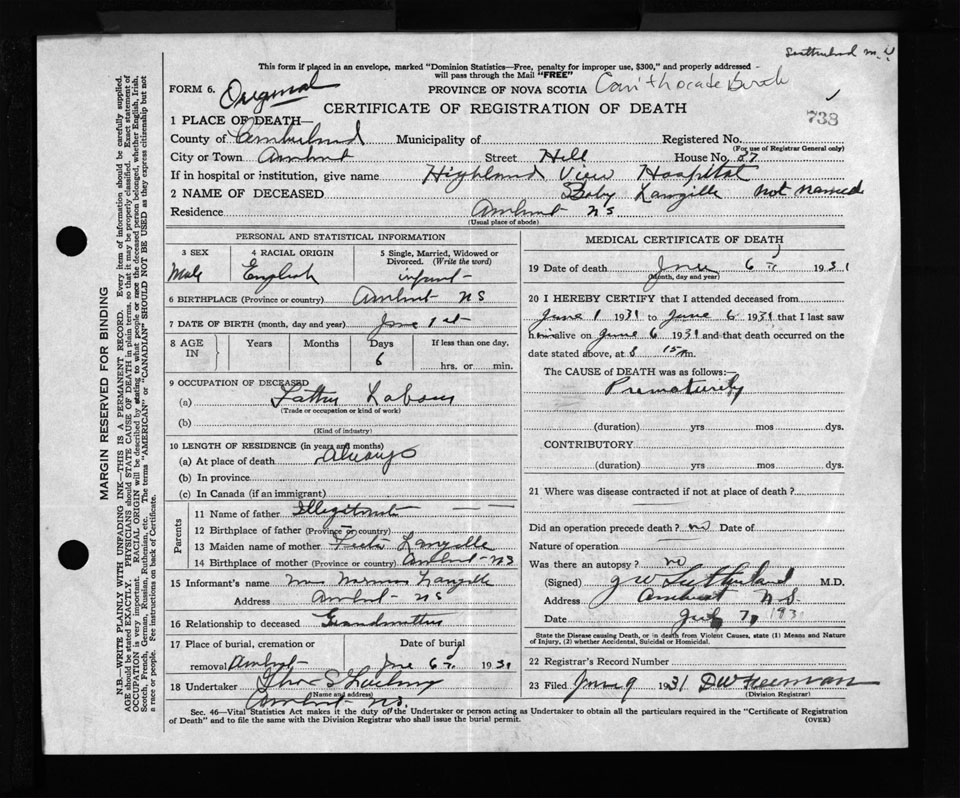 This form if placed in an envelope, marked "Dominion Statistics—Free, penalty for improper use, $300," and properly addressed
will pass through the Mail "FREE"
FORM 6. Original
PROVINCE OF NOVA SCOTIA
CERTIFICATE OF REGISTRATION OF DEATH
738
1 PLACE OF DEATH—
County of Cumberland Municipality of Registered No.
(For use of Registrar General only)
City or Town Amherst Street Hill House No. 27
If in hospital or institution, give name Highland View Hospital
2 NAME OF DECEASED Baby Langille not named
Residence Amherst NS
(Usual place of abode)
PERSONAL AND STATISTICAL INFORMATION
3 SEX 4 RACIAL ORIGIN 5 Single, Married, Widowed or Divorced. (Write the word)
Male English infant
6 BIRTHPLACE (Province or country) Amherst NS
7 DATE OF BIRTH (month, day and year) June 1st
8 AGE IN Years Months Days If less than one day,
6 hrs. or min.
9 OCCUPATION OF DECEASED
(a) Father Labour
(Trade or occupation or kind of work)
(b)
(Kind of industry)
10 LENGTH OF RESIDENCE (in years and months)
(a) At place of death Always
(b) In province
(c) In Canada (if an immigrant)
Parents
11 Name of father Illegitimate
12 Birthplace of father (Province or country)
13 Maiden name of mother Langille
14 Birthplace of mother (Province or country) Amherst NS
15 Informant's name Mrs Norman Langille
Address Amherst NS
16 Relationship to deceased Grandmother
17 Place of burial, cremation or Date of burial
removal Amherst June 6 1931
18 Undertaker
(Name and address)
Amherst NS.
MEDICAL CERTIFICATE OF DEATH
19 Date of death June 6 1931
(Month, day and year)
20 I HEREBY CERTIFY that I attended deceased from
June 1 1931 to June 6 1931 that I last saw
him alive on June 6 1931 and that death occurred on the
date stated above, at 8 15 m.
The CAUSE of DEATH was as follows:—
Prematurity
(duration) yrs mos dys.
CONTRIBUTORY
(duration) yrs mos dys.
21 Where was disease contracted if not at place of death?
Did an operation precede death? no Date of
Nature of operation
Was there an autopsy? no
(Signed) J W Sutherland M.D.
Address Amherst N.S.
Date 7, 1931
State the Disease causing Death, or in death from Violent Causes, state (1) Means and Nature
of Injury, (2) whether Accidental, Suicidal or Homicidal.
22 Registrar's Record Number
23 Filed June 9 1931 DW Freeman
(Division Registrar)
Sec. 46—Vital Statistics Act makes it the duty of the Undertaker or person acting as Undertaker to obtain all the particulars required in the "Certificate of Registration
of Death" and to file the same with the Division Registrar who shall issue the burial permit. (OVER)
MARGIN RESERVED FOR BINDING
N.B.—WRITE PLAINLY WITH UNFADING INK—THIS IS A PERMANENT RECORD. Every item of information should be carefully supplied.
AGE should be stated EXACTLY. PHYSICIANS should STATE CAUSE OF DEATH in plain terms, so that it may be properly classified. Exact statement of
OCCUPATION is very important. RACIAL ORIGIN will be described by stating to what people or race the deceased person belonged, whether English, Irish,
Scotch, French, German, Russian, Ruthenian, etc. The terms "AMERICAN" or "CANADIAN" SHOULD NOT BE USED as they express citizenship but not
a race or people. See instructions on back of Certificate.